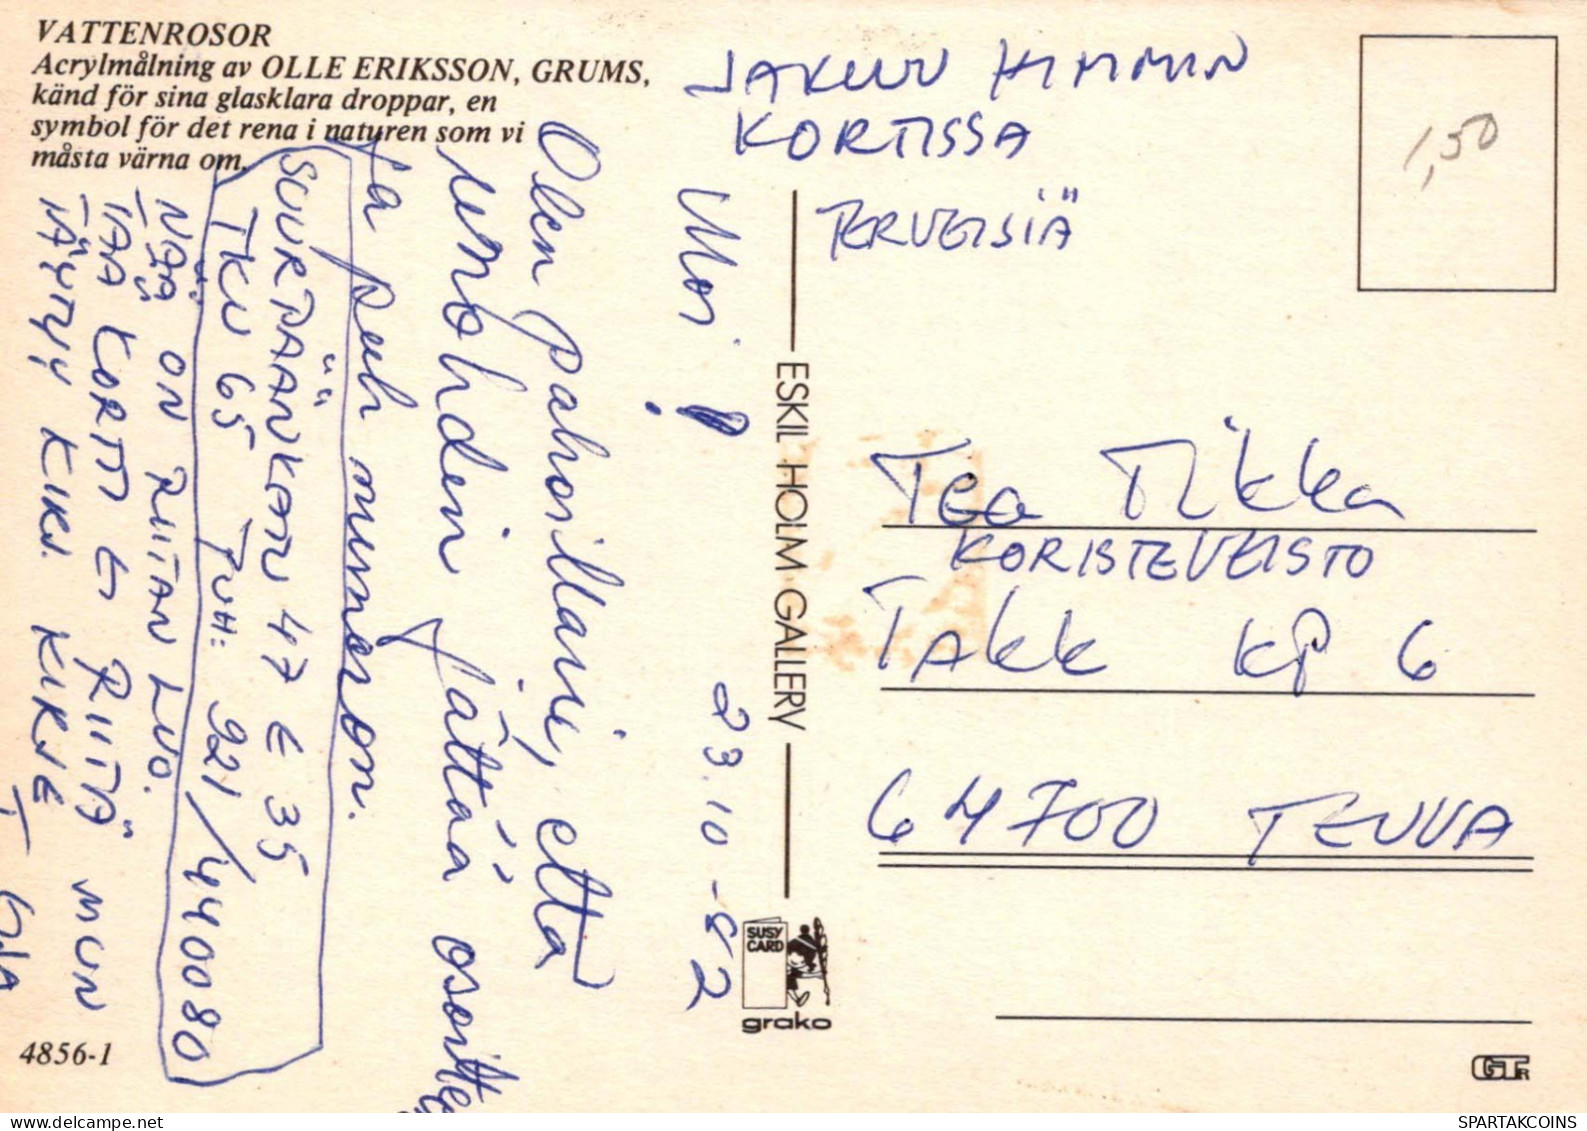 VATTENROSOR
Acrylmålning av OLLE ERIKSSON, GRUMS,
känd för sina glasklara droppar, en
symbol för det rena i naturen som vi
måsta värna om.
KORTISSA
TERVEISIÄ
1,50
23.10-82
Moi!
Olen pahoillani, että
unohdin jättää
ja puh numeron.
SUURPÄÄNKATU 47 E 35
TKU 65 PUH: 921/440080
NÄÄ ON RIITAN LUO.
KORTTI EI RIITÄ MUN
KIRJ. KIRJE
ESKIL HOLM GALLERY
Tea Tikka
KORISTEVEISTO
TAKK KP 6
64700 TEUVA
SUSY
CARD
grako
4856-1
SPARTAKCOINS